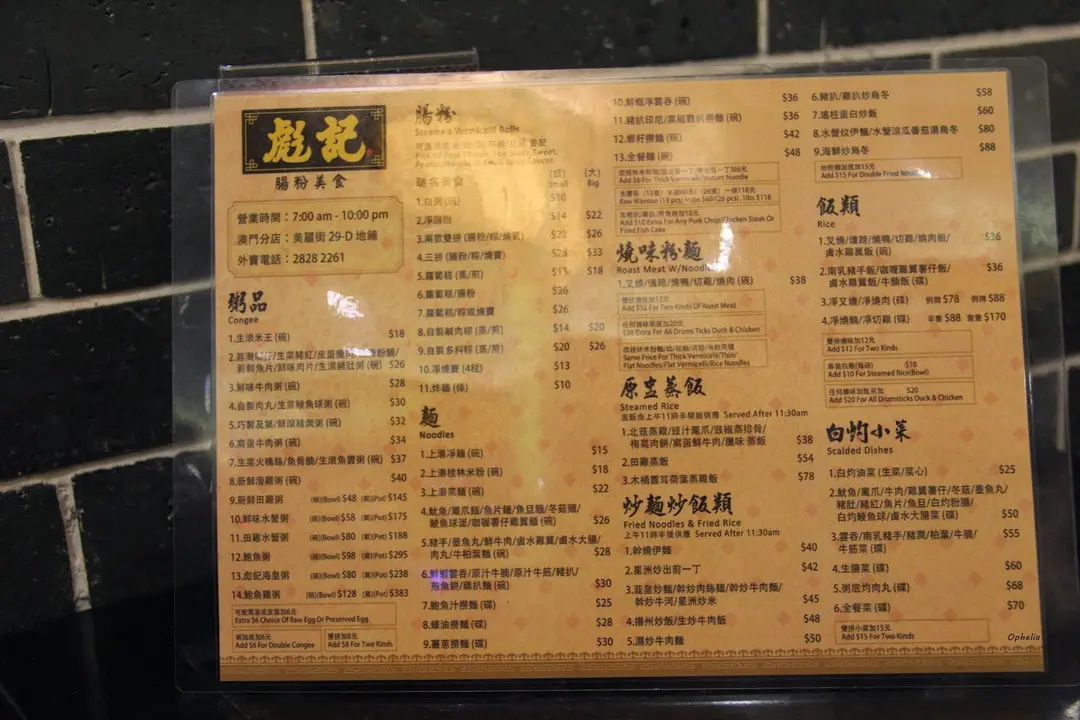 彪記
腸粉美食
營業時間：7:00 am - 10:00 pm
澳門分店：美麗街 29-D 地鋪
外賣電話：2828 2261
粥品
Congee
1.生滾米王 (碗) $18
新鮮魚片/鮮味肉片/生滾豬肚粥 (碗) $26
3.鮮味牛肉粥 (碗) $28
4.自製肉丸/生菜鯪魚球粥 (碗) $30
5.巧製及第/鮮滾豬潤粥 (碗) $32
6.窩蛋牛肉粥 (碗) $34
7.生菜火鴨絲/魚骨腩/生滾魚雲粥 (碗) $37
8.新鮮滑雞粥 (碗) $40
9.新鮮田雞粥 (碗)(Bowl) $48 (窩)(Pot) $145
10.鮮味水蟹粥 (碗)(Bowl) $58 (窩)(Pot) $175
11.田雞水蟹粥 (碗)(Bowl) $80 (窩)(Pot) $188
12.鮑魚粥 (碗)(Bowl) $98 (窩)(Pot) $295
13.彪記海皇粥 (碗)(Bowl) $80 (窩)(Pot) $238
14.鮑魚雞粥 (碗)(Bowl) $128 (窩)(Pot) $383
Extra $6 Choice Of Raw Egg Or Preserved Egg
粥加底加6元
Add $6 For Double Congee
雙拼加8元
Add $8 For Two Kinds
腸粉
Steamed Vermicelli Rolls
馳名美食 (細) (大)
Small Big
1.白粥 (碗) $10
2.淨腸粉 $14 $22
3.兩款雙拼 (腸粉/粽/燒賣) $22 $26
4.三拼 (腸粉/粽/燒賣) $28 $33
5.蘿蔔糕 (蒸/煎) $13 $18
6.蘿蔔糕/腸粉 $26
7.蘿蔔糕/粽或燒賣 $26
8.自製鹹肉粽 (蒸/煎) $14 $20
9.自製多料粽 (蒸/煎) $20 $26
10.淨燒賣 (4粒) $13
11.炸麵 (條) $10
麵
Noodles
1.上湯淨麵 (碗) $15
2.上湯桂林米粉 (碗) $18
3.上湯菜麵 (碗) $22
4.魷魚/鳳爪麵/魚片麵/魚旦麵/冬菇麵/
鯪魚球面/咖喱薯仔雞翼麵 (碗) $26
5.豬手/墨魚丸/鮮牛肉/鹵水雞翼/鹵水大腸/
肉丸/牛柏葉麵 (碗) $28
6.鮮蝦雲吞/原汁牛腩/原汁牛筋/豬扒/
煎魚餅/雞扒麵 (碗) $30
7.鮑魚汁撈麵 (碟) $25
8.蠔油撈麵 (碟) $28
9.薑蔥撈麵 (碟) $30
10.鮮蝦淨雲吞 (碗) $36
11.豬扒印尼/黑椒雞扒撈麵 (碗) $36
12.蝦籽撈麵 (碗) $42
13.全餐麵 (碗) $48
Add $6 For Thick Vermicelli/Instant Noodle
Raw Wonton (13 pcs) ½lbs $60 (26 pcs) 1lbs $118
Add $10 Extra For Any Pork Chop/Chicken Steak Or
Fried Fish Cake
燒味粉麵
Roast Meat W/Noodles
1.叉燒/燻蹄/燒鴨/切雞/燒肉 (碗) $38
雙拼燒味加12元
Add $12 For Two Kinds Of Roast Meat
任何燒味髀加20元
$20 Extra For All Drums Ticks Duck & Chicken
Same Price For Thick Vermicelli/Thin/
Flat Noodles/Flat Vermicelli/Rice Noodles
原盅蒸飯
Steamed Rice
盅飯由上午11時半開始供應 Served After 11:30am
1.北菇蒸雞/豉汁鳳爪/豉椒蒸排骨/
梅菜肉餅/窩蛋鮮牛肉/臘味 蒸飯 $38
2.田雞蒸飯 $54
3.木桶雲耳荷葉蒸雞飯 $78
炒麵炒飯類
Fried Noodles & Fried Rice
上午11時半後供應 Served After 11:30am
1.幹燒伊麵 $40
2.星洲炒出前一丁 $42
3.韮皇炒麵/幹炒肉絲麵/幹炒牛肉麵/
幹炒牛河/星洲炒米 $45
4.揚州炒飯/生炒牛肉飯 $48
5.濕炒牛肉麵 $50
6.豬扒/雞扒炒烏冬 $58
7.瑤柱蛋白炒飯 $60
8.水蟹炆伊麵/水蟹涼瓜番茄湯烏冬 $80
9.海鮮炒烏冬 $88
炒粉麵加底加15元
Add $15 For Double Fried Noodles
飯類
Rice
1.叉燒/燻蹄/燒鴨/切雞/燒肉飯/ $36
鹵水雞翼飯 (碗)
2.南乳豬手飯/咖喱雞翼薯仔飯/ $36
鹵水雞翼飯/牛腩飯 (碟)
3.淨叉燒/淨燒肉 (碟) 例牌 $78 例牌 $88
4.淨燒鵝/淨切雞 (碟) 半隻 $88 壹隻 $170
雙拼燒味加12元
Add $12 For Two Kinds
$10
Add $10 For Steamed Rice(Bowl)
任何燒味加髀另加 $20
Add $20 For All Drumsticks Duck & Chicken
白灼小菜
Scalded Dishes
1.白灼油菜 (生菜/菜心) $25
2.魷魚/鳳爪/牛肉/雞翼薯仔/冬菇/墨魚丸/
豬肚/豬紅/魚片/魚旦/白灼粉腸/
白灼鯪魚球/鹵水大腸菜 (碟) $50
3.雲吞/南乳豬手/豬潤/柏葉/牛腩/ $55
牛筋菜 (碟)
4.生腸菜 (碟) $60
5.粥底灼肉丸 (碟) $68
6.全餐菜 (碟) $70
雙拼小菜加15元
Add $15 For Two Kinds
Ophelia